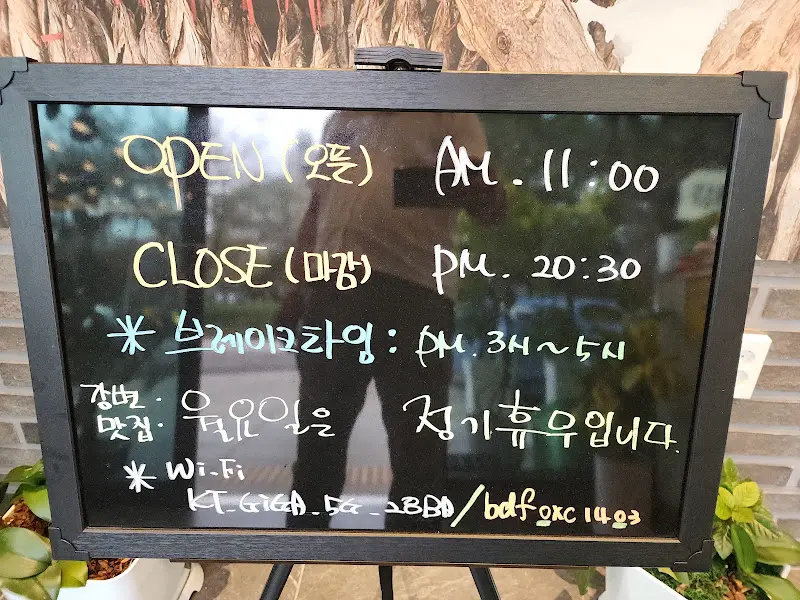 OPEN (오픈) AM. 11:00
CLOSE (마감) PM. 20:30
* 브레이크타임 : PM. 3시~5시
강변.
맛집. 월요일은 정기휴무입니다.
* Wi-Fi
KT_GiGA_5G_28BA/bdf0xc1403